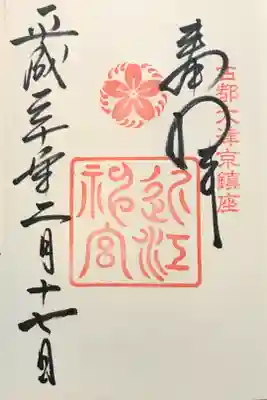 奉拝
古都大津京鎮座
近江神宮
平成三十年二月十七日